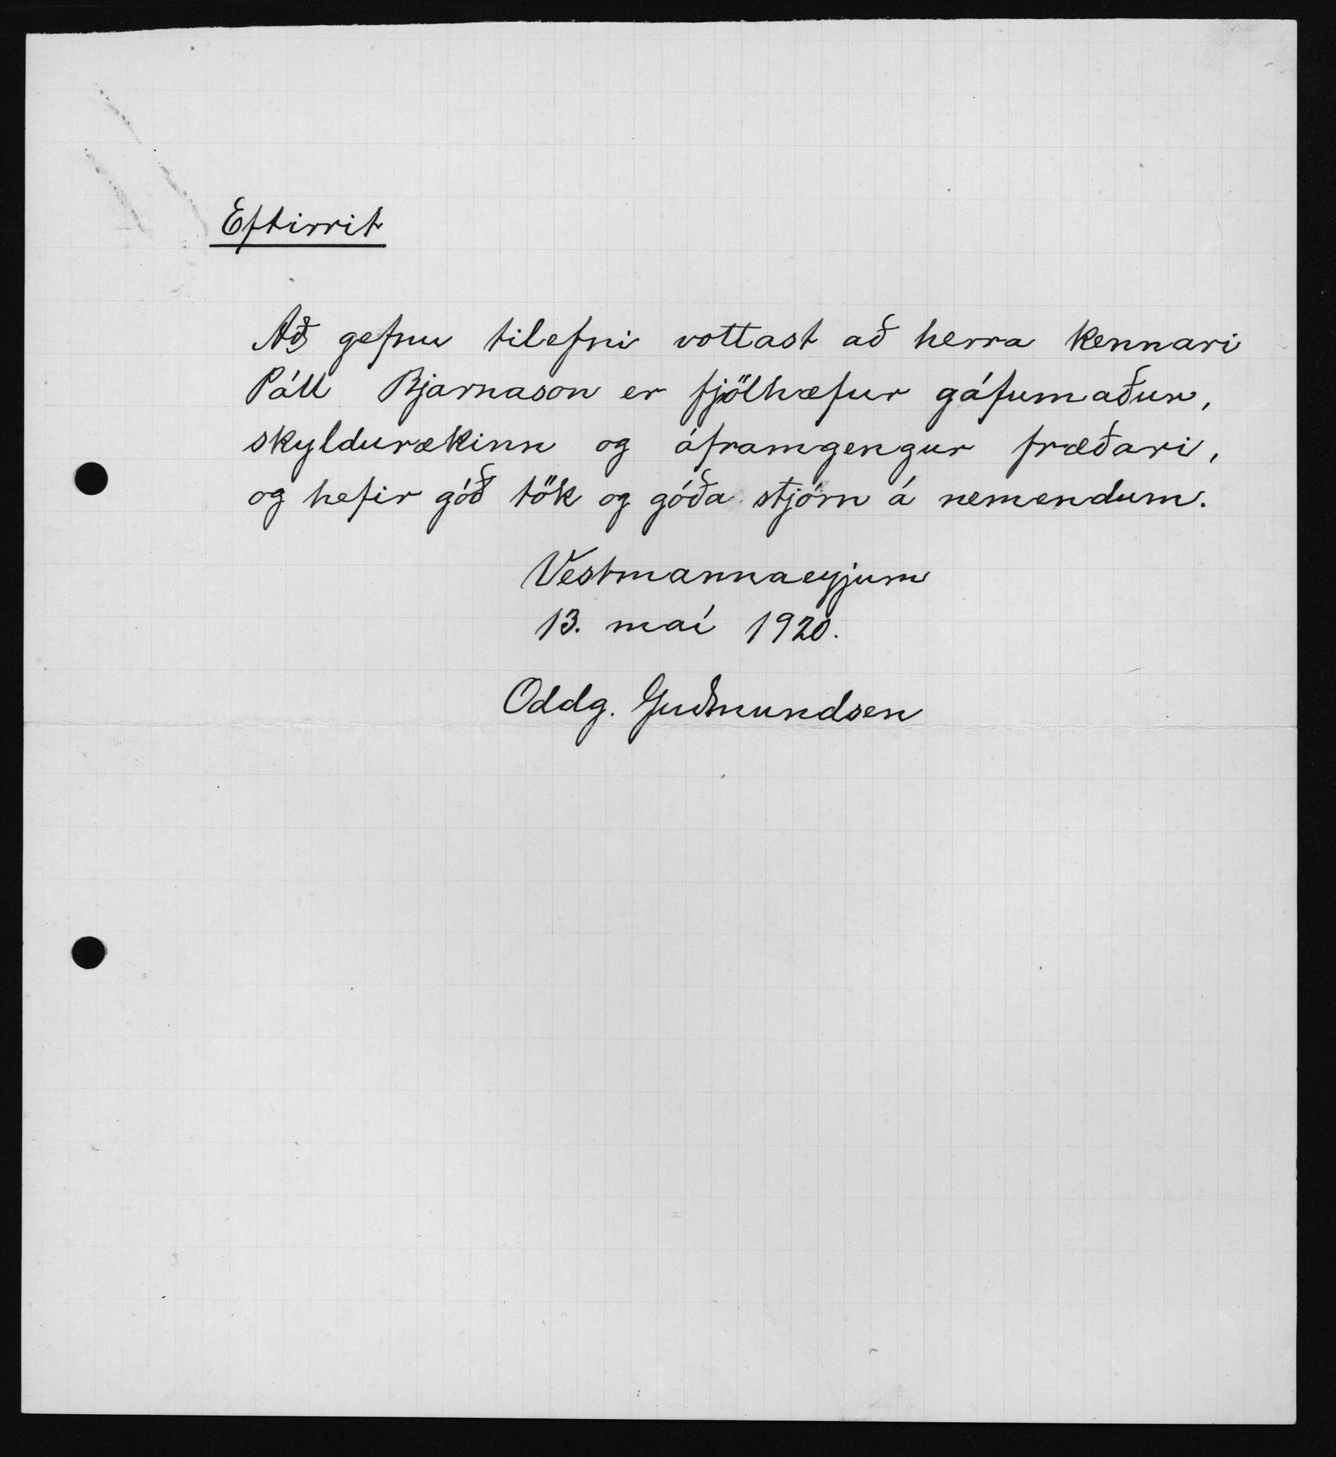 Eftirrit
Að gefnu tilefni vottast að herra kennari
Páll Bjarnason er fjölhæfur gáfumaður,
skyldurækinn og áframgengur fræðari,
og hefir góð tök og góða stjórn á nemendum.
Vestmannaeyjum
13. maí 1920.
Oddg. Guðmundsen